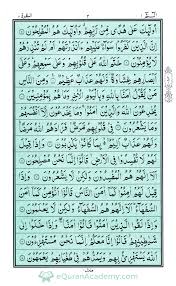 البقرة ٢
٣
الٓمّٓ ١
اُولٰٓئِكَ عَلٰى هُدًى مِّنْ رَّبِّهِمْ وَاُولٰٓئِكَ هُمُ الْمُفْلِحُوْنَ
اِنَّ الَّذِيْنَ كَفَرُوْا سَوَآءٌ عَلَيْهِمْ ءَاَنْذَرْتَهُمْ اَمْ لَمْ تُنْذِرْهُمْ
لَا يُؤْمِنُوْنَ خَتَمَ اللّٰهُ عَلٰى قُلُوْبِهِمْ وَعَلٰى سَمْعِهِمْ وَعَلٰٓى
اَبْصَارِهِمْ غِشَاوَةٌ وَّلَهُمْ عَذَابٌ عَظِيْمٌ وَمِنَ النَّاسِ مَنْ
يَّقُوْلُ اٰمَنَّا بِاللّٰهِ وَبِالْيَوْمِ الْاٰخِرِ وَمَا هُمْ بِمُؤْمِنِيْنَ
يُخٰدِعُوْنَ اللّٰهَ وَالَّذِيْنَ اٰمَنُوْا وَمَا يَخْدَعُوْنَ اِلَّآ اَنْفُسَهُمْ
وَمَا يَشْعُرُوْنَ فِيْ قُلُوْبِهِمْ مَّرَضٌ فَزَادَهُمُ اللّٰهُ مَرَضًا
وَلَهُمْ عَذَابٌ اَلِيْمٌ بِمَا كَانُوْا يَكْذِبُوْنَ وَاِذَا قِيْلَ
لَهُمْ لَا تُفْسِدُوْا فِي الْاَرْضِ قَالُوْٓا اِنَّمَا نَحْنُ مُصْلِحُوْنَ
اَلَآ اِنَّهُمْ هُمُ الْمُفْسِدُوْنَ وَلٰكِنْ لَّا يَشْعُرُوْنَ وَاِذَا قِيْلَ
لَهُمْ اٰمِنُوْا كَمَآ اٰمَنَ النَّاسُ قَالُوْٓا اَنُؤْمِنُ كَمَآ اٰمَنَ
السُّفَهَآءُ اَلَآ اِنَّهُمْ هُمُ السُّفَهَآءُ وَلٰكِنْ لَّا يَعْلَمُوْنَ
وَاِذَا لَقُوا الَّذِيْنَ اٰمَنُوْا قَالُوْٓا اٰمَنَّا وَاِذَا خَلَوْا اِلٰى
شَيٰطِيْنِهِمْ قَالُوْٓا اِنَّا مَعَكُمْ اِنَّمَا نَحْنُ مُسْتَهْزِءُوْنَ
اَللّٰهُ يَسْتَهْزِئُ بِهِمْ وَيَمُدُّهُمْ فِيْ طُغْيَانِهِمْ يَعْمَهُوْنَ
eQuranAcademy.com